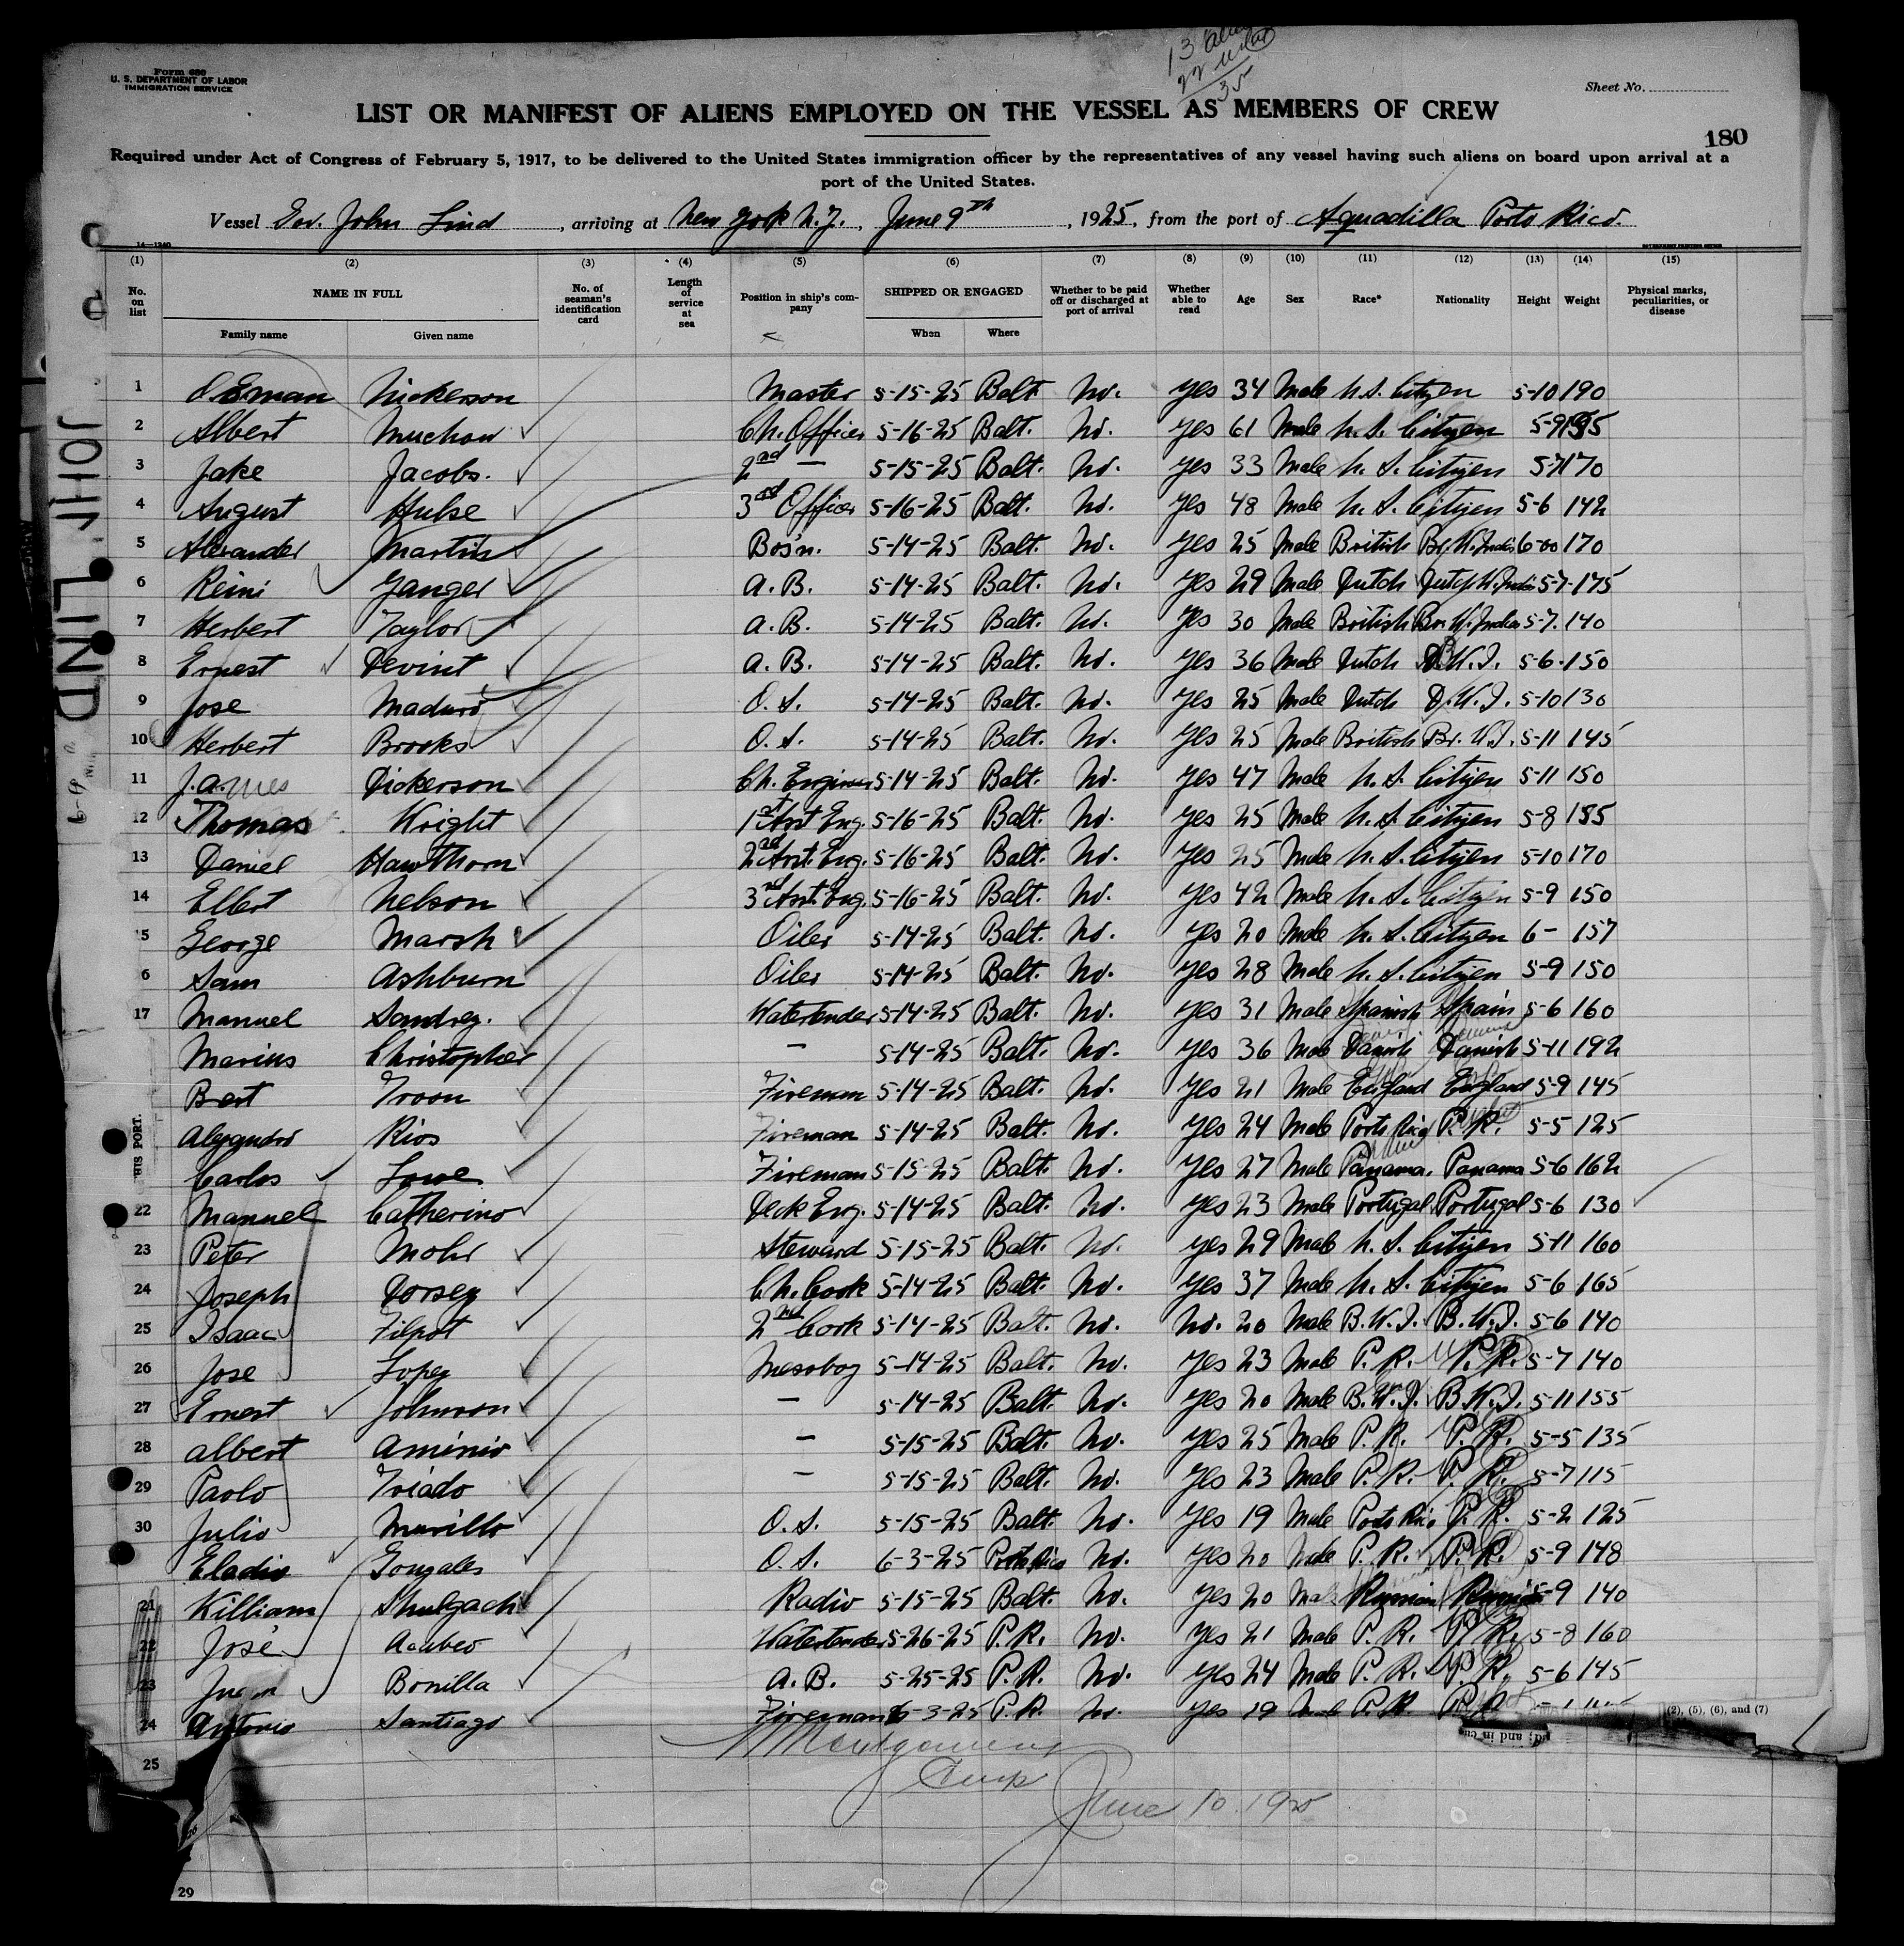 Form 680
U. S. DEPARTMENT OF LABOR
IMMIGRATION SERVICE
13 aliens
22
35
Sheet No.
LIST OR MANIFEST OF ALIENS EMPLOYED ON THE VESSEL AS MEMBERS OF CREW
180
Required under Act of Congress of February 5, 1917, to be delivered to the United States immigration officer by the representatives of any vessel having such aliens on board upon arrival at a
port of the United States.
Vessel Gov. John Lind, arriving at New York N.Y., June 9th, 1925, from the port of Aguadilla Porto Rico.
14—1240
GOVERNMENT PRINTING OFFICE
(1) (2) (3) (4) (5) (6) (7) (8) (9) (10) (11) (12) (13) (14) (15)
No. on list NAME IN FULL No. of seaman's identification card Length of service at sea Position in ship's company SHIPPED OR ENGAGED Whether to be paid off or discharged at port of arrival Whether able to read Age Sex Race* Nationality Height Weight Physical marks, peculiarities, or disease
Family name Given name When Where
1 Nickerson Master 5-15-25 Balt No. Yes 34 Male U.S. Citizen 5-10 190
2 Albert Muchow Ch. Officer 5-16-25 Balt. No. Yes 61 Male U.S. Citizen 5-9
3 Jake Jacobs. 2nd — 5-15-25 Balt. No. Yes 33 Male U.S. Citizen 5-7 170
4 August Hulse 3rd Officer 5-16-25 Balt. No. Yes 48 Male U.S. Citizen 5-6 142
5 Alexander Martin Bos'n. 5-14-25 Balt. No. Yes 25 Male British Br. W. Indies 6-00 170
6 Reini Janger A.B. 5-14-25 Balt. No. Yes 29 Male Dutch Dutch W. Indies 5-7-175
7 Herbert Taylor A.B. 5-14-25 Balt. No. Yes 30 Male British Br. W. Indies 5-7. 140
8 Ernest Devint A.B. 5-14-25 Balt. No. Yes 36 Male Dutch D.W.I. 5-6-150
9 Jose Maduro O.S. 5-14-25 Balt. No. Yes 25 Male Dutch D.W.I. 5-10 130
10 Herbert Brooks O.S. 5-14-25 Balt. No. Yes 25 Male British Br. W.I. 5-11 145
11 James Dickerson Ch. Engineer 5-14-25 Balt. No. Yes 47 Male U.S. Citizen 5-11 150
12 Thomas Wright 1st Asst Eng. 5-16-25 Balt. No. Yes 25 Male U.S. Citizen 5-8 185
13 Daniel Hawthorn 2nd Asst. Eng. 5-16-25 Balt. No. Yes 25 Male U.S. Citizen 5-10 170
14 Elbert Nelson 3rd Asst. Eng. 5-16-25 Balt. No. Yes 42 Male U.S. Citizen 5-9 150
15 George Marsh Oiler 5-14-25 Balt. No. Yes 20 Male U.S. Citizen 6- 157
6 Sam Ashburn Oiler 5-14-25 Balt. No. Yes 28 Male U.S. Citizen 5-9 150
17 Manuel Sandrez. Watertender 5-14-25 Balt. No. Yes 31 Male Spanish Spain 5-6 160
Marius Christopher — 5-14-25 Balt. No. Yes 36 Male Danish Danish 5-11 192
Bert Troon Fireman 5-14-25 Balt. No. Yes 21 Male England England 5-9 145
Alejandro Rios Fireman 5-14-25 Balt. No. Yes 24 Male Porto Rico P.R. 5-5 125
Carlos Lowe Fireman 5-15-25 Balt. No. Yes 27 Male Panama. Panama 5-6 162
22 Manuel Catherino Deck Eng. 5-14-25 Balt. No. Yes 23 Male Portugal Portugal 5-6 130
23 Peter Mohr Steward 5-15-25 Balt. No. Yes 29 Male U.S. Citizen 5-11 160
24 Joseph Dorsey Ch. Cook 5-14-25 Balt. No. Yes 37 Male U.S. Citizen 5-6 165
25 Isaac Filpot 2nd Cook 5-14-25 Balt. No. No. 20 Male B.W.I. B.W.I. 5-6 140
26 Jose Lopez Messboy 5-14-25 Balt. No. Yes 23 Male P.R. P.R. 5-7 140
27 Ernest Johnson — 5-14-25 Balt. No. Yes 20 Male B.W.I. B.W.I. 5-11 155
28 Albert Aminio — 5-15-25 Balt. No. Yes 25 Male P.R. P.R. 5-5 135
29 Paolo Triado — 5-15-25 Balt. No. Yes 23 Male P.R. P.R. 5-7 115
30 Julio Murillo O.S. 5-15-25 Balt. No. Yes 19 Male Porto Rico P.R. 5-2 125
Eladio Gonzales O.S. 6-3-25 Porto Rico No. Yes 20 Male P.R. P.R. 5-9 148
21 William Shulgach Radio 5-15-25 Balt. No. Yes 20 Male Russian Russian 5-9 140
22 José Acubeo Watertender 5-26-25 P.R. No. Yes 21 Male P.R. P.R. 5-8 160
23 Juan Bonilla A.B. 5-25-25 P.R. No. Yes 24 Male P.R. P.R. 5-6 145
24 Antonio Santiago Fireman 6-3-25 P.R. No. Yes 19 Male P.R. P.R.
(2), (5), (6), and (7)
and in
25
Montgomery
June 10 1925
29
JOHN LIND
HIS PORT.